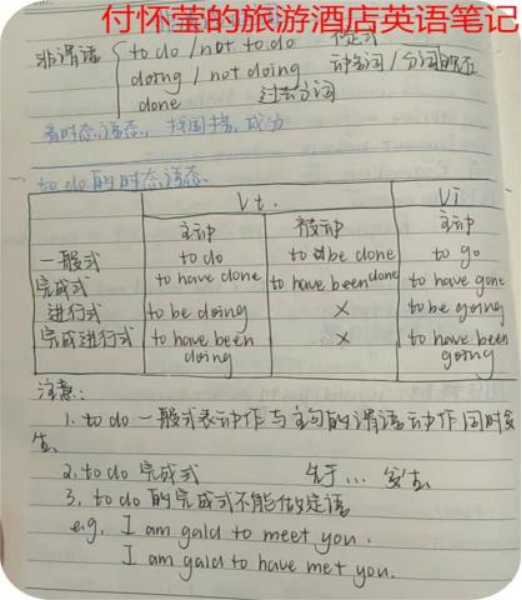 付怀莹的旅游酒店英语笔记
非谓语 to do / not to do 不定式
doing / not doing 动名词 / 分词现在
done 过去分词
看时态,语态, 找固搭,成分
to do 的时态语态
Vt. Vi
主动 被动 主动
一般式 to do to be done to go
完成式 to have done to have been done to have gone
进行式 to be doing × to be going
完成进行式 to have been doing × to have been going
注意:
1. to do 一般式表动作与主句的谓语动作同时发
生.
2. to do 完成式 先于... 发生.
3. to do 的完成式不能做定语
e.g. I am gald to meet you.
I am gald to have met you.